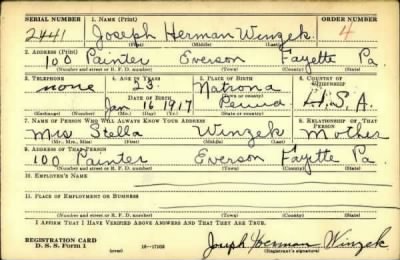 SERIAL NUMBER 1. NAME (Print) ORDER NUMBER
2441 Joseph Herman Winzek 4
(First) (Middle) (Last)
2. ADDRESS (Print)
100 Painter Everson Fayette Pa.
(Number and street or R. F. D. number) (Town) (County) (State)
3. TELEPHONE 4. AGE IN YEARS 5. PLACE OF BIRTH 6. COUNTRY OF CITIZENSHIP
none 23 Natrona
DATE OF BIRTH (Town or county)
Jan 16 1917 Penna U.S.A.
(Exchange) (Number) (Mo.) (Day) (Yr.) (State or country)
7. NAME OF PERSON WHO WILL ALWAYS KNOW YOUR ADDRESS 8. RELATIONSHIP OF THAT PERSON
Mrs Stella Winzek Mother
(Mr., Mrs., Miss) (First) (Middle) (Last)
9. ADDRESS OF THAT PERSON
100 Painter Everson Fayette Pa.
(Number and street or R. F. D. number) (Town) (County) (State)
10. EMPLOYER'S NAME
11. PLACE OF EMPLOYMENT OR BUSINESS
(Number and street or R. F. D. number) (Town) (County) (State)
I AFFIRM THAT I HAVE VERIFIED ABOVE ANSWERS AND THAT THEY ARE TRUE.
REGISTRATION CARD
D. S. S. Form 1 (over) Joseph Herman Winzek
(Registrant's signature)